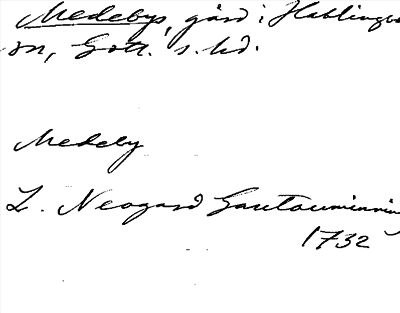 Medebys, gård i Hablingbo
sn, Gotl. s. hd.
Medeby
L. Neogard Gautauminning
1732